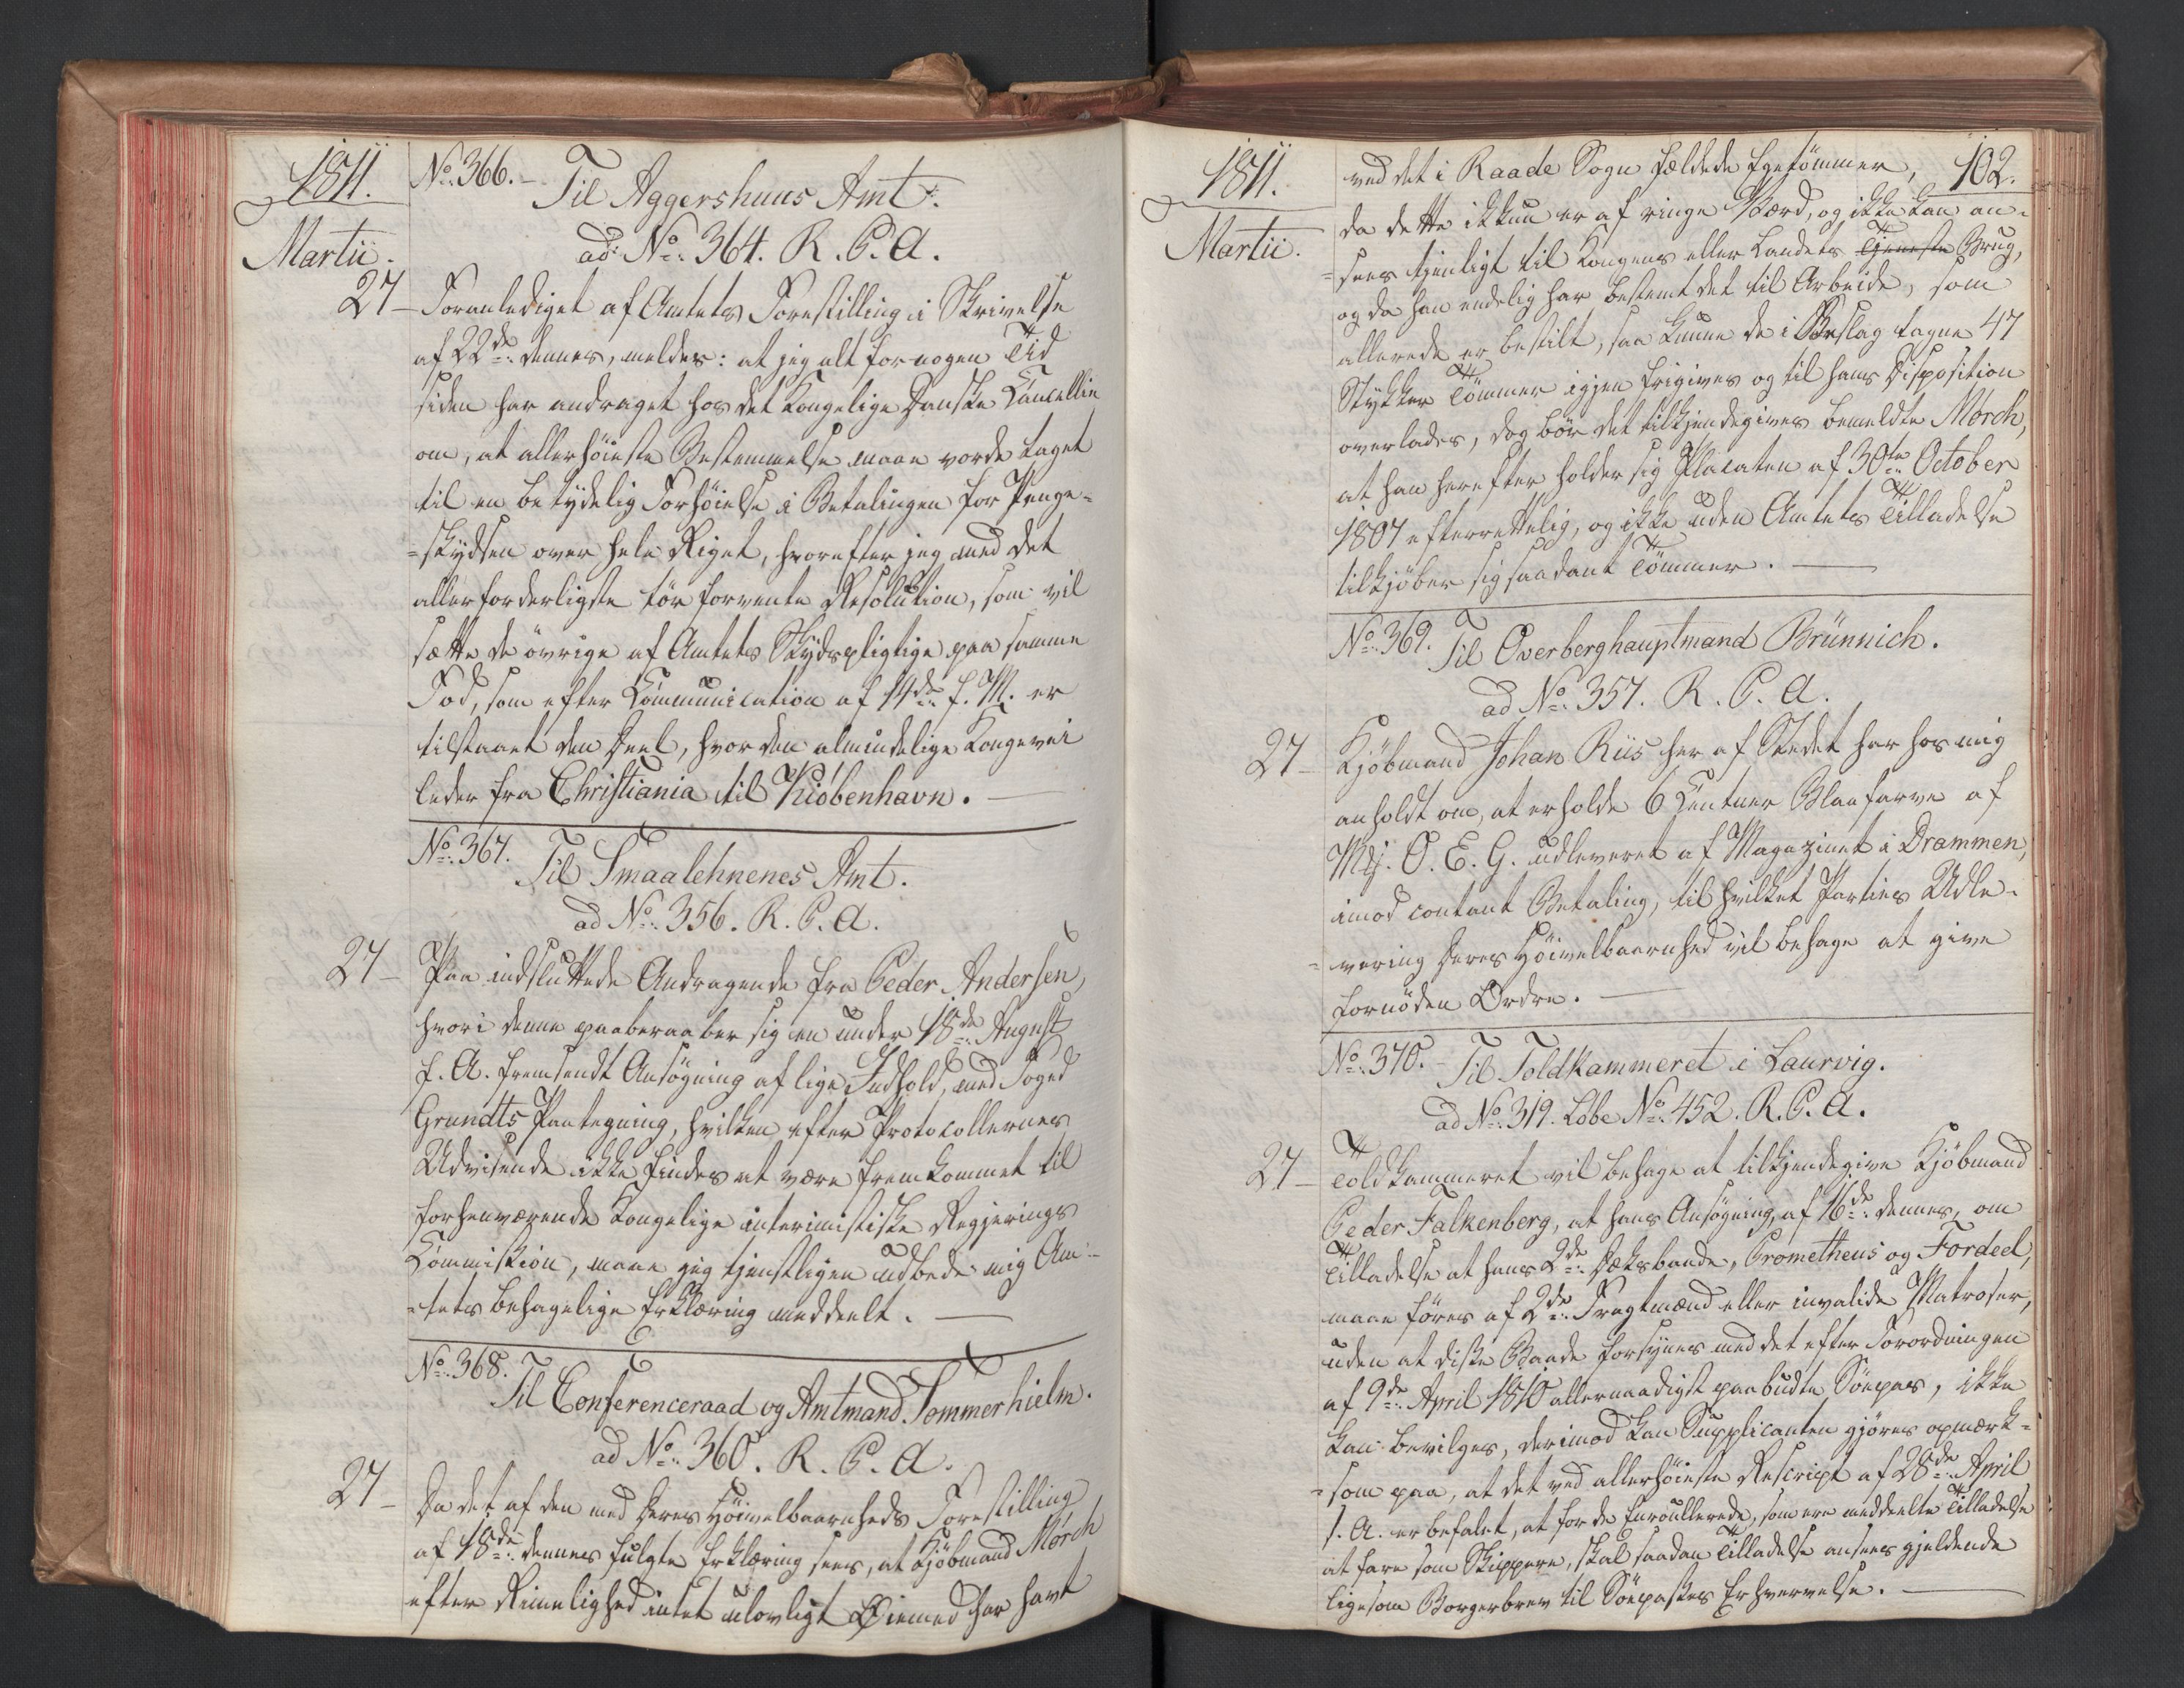 1811.
Martii.
No: 366.– Til Aggershuus Amt.
ad: No: 364. R. P. A.
27– Foranlediget af Amtets Forestilling i Skrivelse
af 22de: dennes, meldes: at jeg alt for nogen Tid
siden har andraget hos det Kongelige Danske Cancellie
om, at allerhöieste Bestemmelse maae vorde taget
til en betydelig Forhöielse i Betalingen for Penge-
=skydsen over hele Riget, hvorefter jeg med det
allerforderligste tör forvente Resolution, som vil
sætte de övrige af Amtets Skydspligtige paa samme
Fod, som efter Communication af 14de: f. M. er
tilstaaet den Deel, hvor den almindelige Kongevei
leder fra Christiania til Kiöbenhavn. —
No: 367. Til Smaalehnenes Amt.
ad No: 356. R. P. A.
27– Paa indsluttede Andragende fra Peder Andersen,
hvori denne paaberaaber sig en under 18de: August
f. A. fremsendt Ansögning af lige Indhold, med Foged
Grundts Paategning, hvilken efter Protocollernes
Udvisende ikke findes at være fremkommet til
forhenværende Kongelige interimistiske Regjerings
Commission, maae jeg tjenstligen udbede mig Am-
=tets behagelige Erklæring meddeelt. —
No: 368. Til Conferenceraad og Amtmand Sommerhielm.
ad No: 360. R. P. A.
27– Da det af den med Deres Höivelbaarenheds Forestilling
af 18de: dennes fulgte Erklæring sees, at Kjöbmand Mörch
efter Rimelighed intet ulovligt Öiemed har havt
1811.
Martii.
102.
ved det i Raade Sogn fældede Egetömmer,
da dette ikkun er af ringe Værd, og ikke kan an-
=sees tjenligt til Kongens eller Landets Tjeneste Brug,
og da han endelig har bestemt det til Arbeide, som
allerede er bestilt, saa kunne de i Beslag tagne 47
Stykker Tömmer igjen frigives og til hans Disposition
overlades, dog bör det tilkjendegives bemeldte Mörch,
at han herefter holder sig Placaten af 30te: October
1807 efterrettelig, og ikke uden Amtets Tilladelse
tilkjöber sig saadant Tömmer. —
No: 369. Til Overberghauptmand Brünnich.
ad No: 357. R. P. A.
27– Kjöbmand Johan Riis her af Stedet har hos mig
anholdt om, at erholde 6 Centner Blaafarve af
Mk. O. E. G. udleveret af Magazinet i Drammen,
imod contant Betaling, til hvilket Parties Udle-
=vering Deres Höivelbaarenhed vil behage at give
fornöden Ordre. —
No: 370. Til Toldkammeret i Laurvig.
ad No: 319. Löbe No: 452. R. P. A.
27– Toldkammeret vil behage at tilkjendegive Kjöbmand
Peder Falkenberg, at hans Ansögning, af 16de: dennes, om
Tilladelse at hans 2de: Dæksbaade, Prometheus og Fordeel,
maae föres af 2de: Fragtmænd eller invalide Matroser,
uden at disse Baade forsynes med det efter Forordningen
af 9de: April 1810 allernaadigst paabudte Söepas, ikke
kan bevilges, derimod kan Supplicanten gjöres opmærk-
=som paa, at det ved allerhöieste Rescript af 28de: April
s. A. er befalet, at for de Enroullerede, som ere meddeelte Tilladelse
at fare som Skippere, skal saadan Tilladelse ansees gjeldende
ligesom Borgerbrev til Söepasses Erhvervelse. —